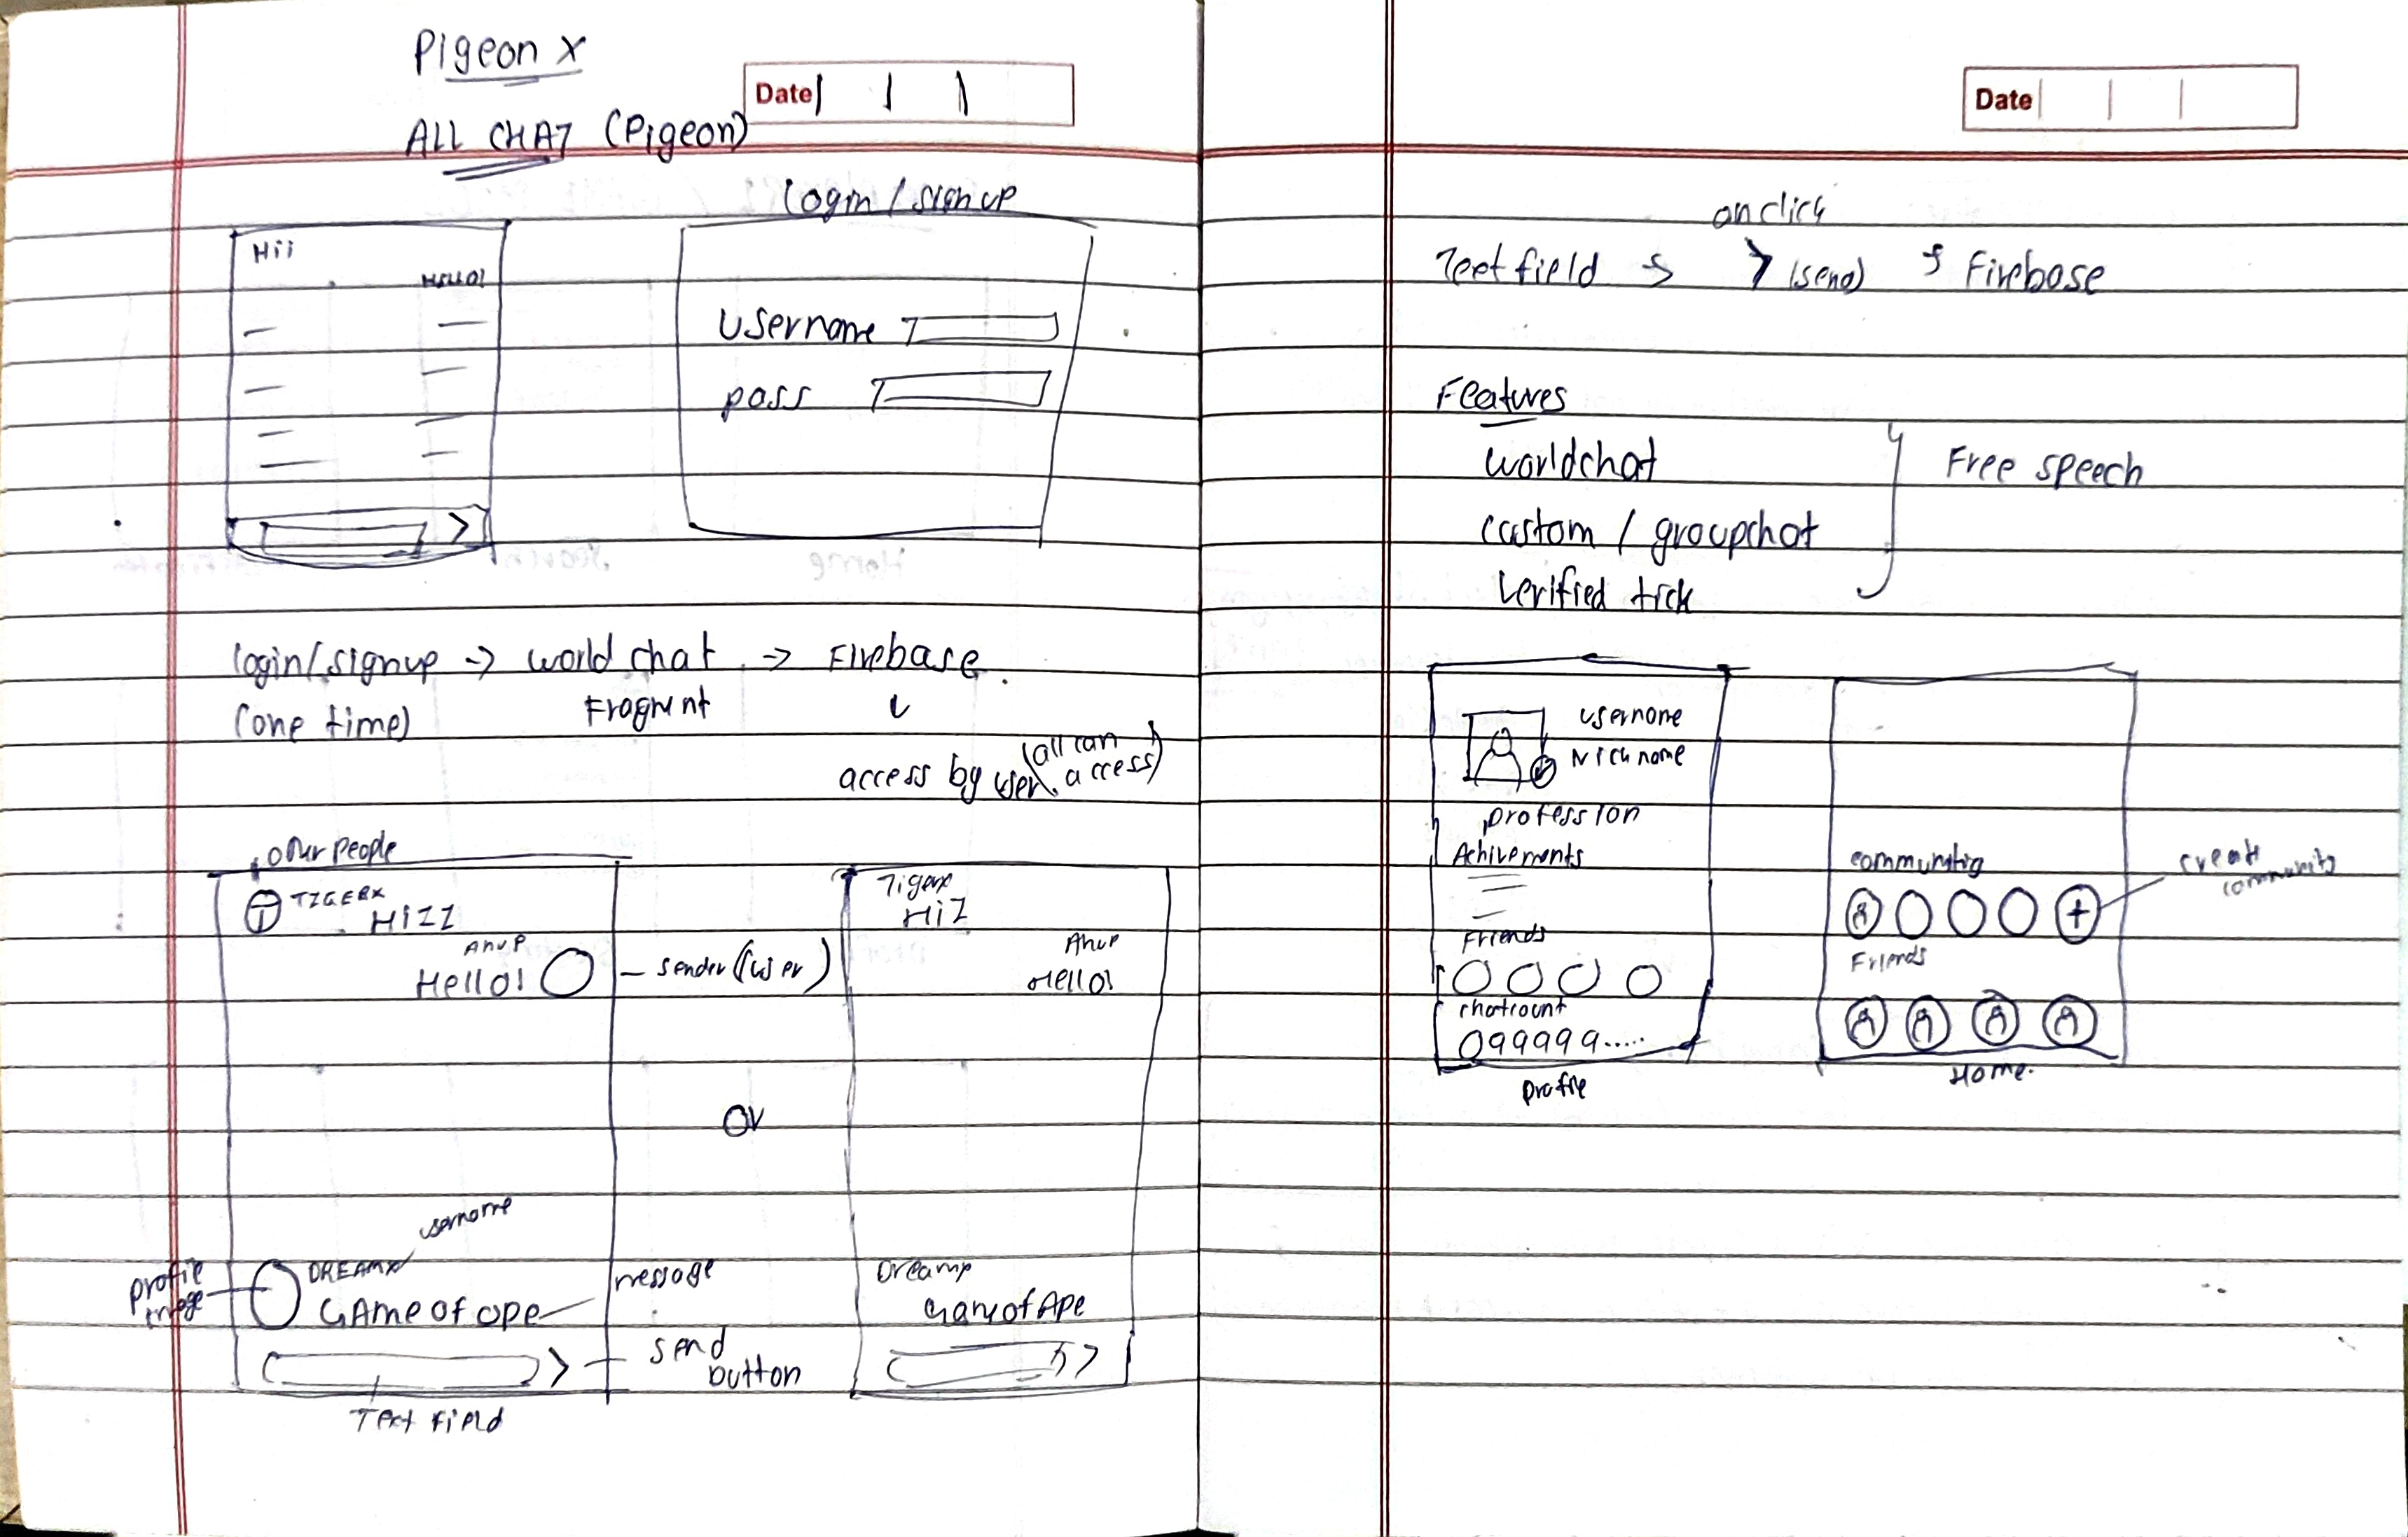 Pigeon X
Date
ALL CHAT (Pigeon)
Login / Signup
Hii
HELLO!
Username
pass
login/signup -> world chat -> Firebase.
(one time)
Fragment
access by user (all can access)
other people
TIGERX
HiZZ
Anup
Hello!
sender (user)
Tigerx
HiZ
Anup
Hello!
or
username
profile image
DREAMX
message
GAme of ope
Dreamp
Game of Ape
send button
Text Field
Date
on click
Text field -> > (send) -> Firebase
Features
worldchat
custom / groupchat
verified tick
Free speech
username
Nickname
profession
Achivements
Friends
chatcount
099999.....
profile
create community
Friends
Home.